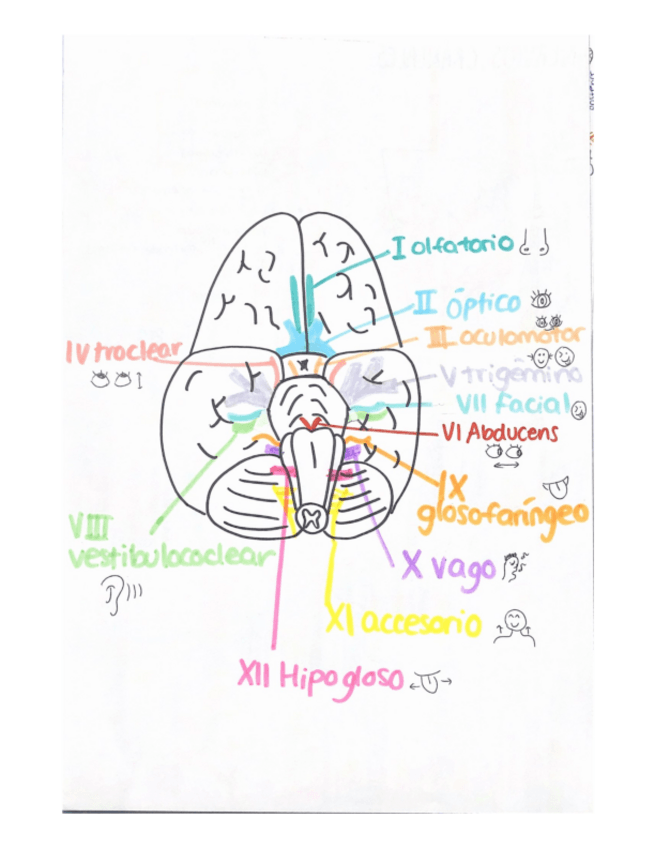 I olfatorio
II óptico
III oculomotor
IV troclear
V trigêmino
VII facial
VI Abducens
IX
glosofaríngeo
VIII
vestibulococlear
X vago
XI accesorio
XII Hipogloso